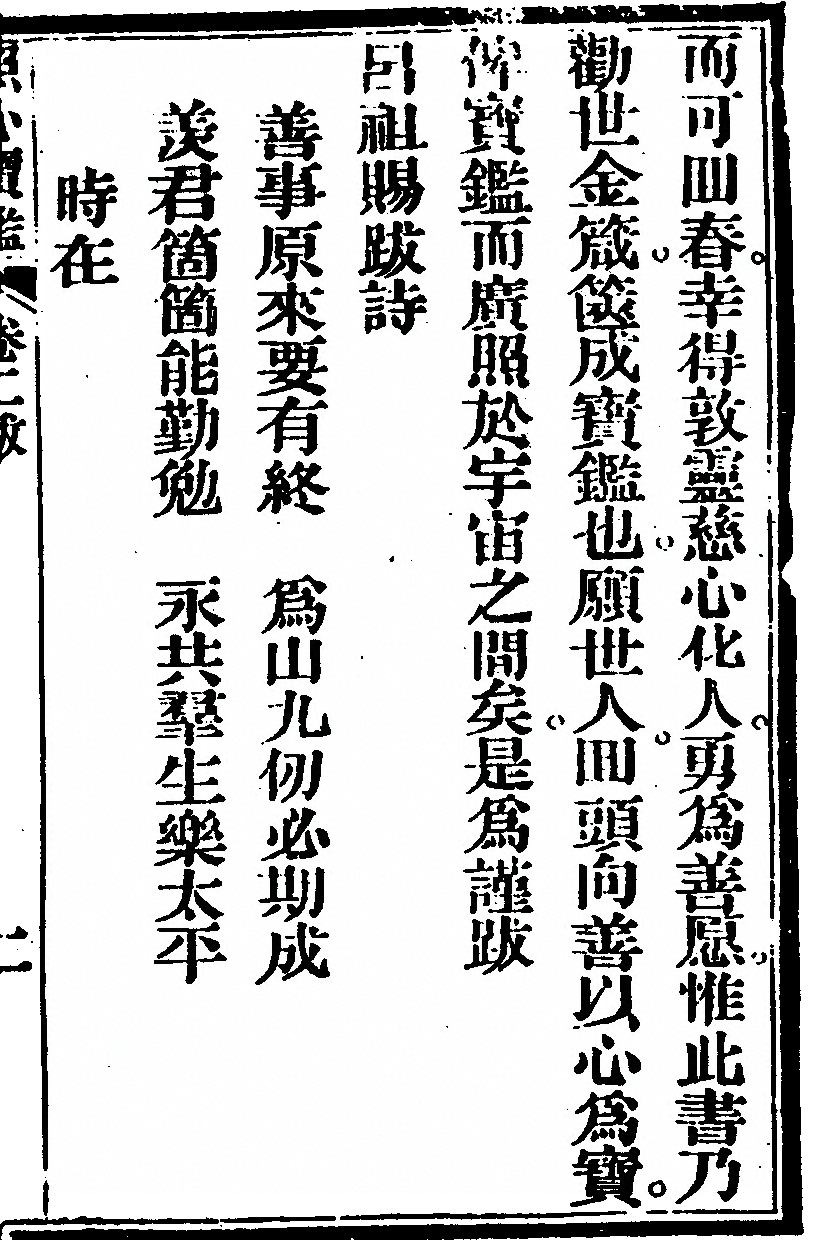 而可回春。幸得敦靈慈心化人。勇為善愿。惟此書乃
勸世金箴。篋成寶鑑也。願世人回頭。向善以心為寶。
俾寶鑑而廣照於宇宙之間矣。是為謹跋
呂祖賜跋詩
善事原來要有終　為山九仞必期成
羨君箇箇能勤勉　永共羣生樂太平
時在
照心寶鑑　卷二跋　二